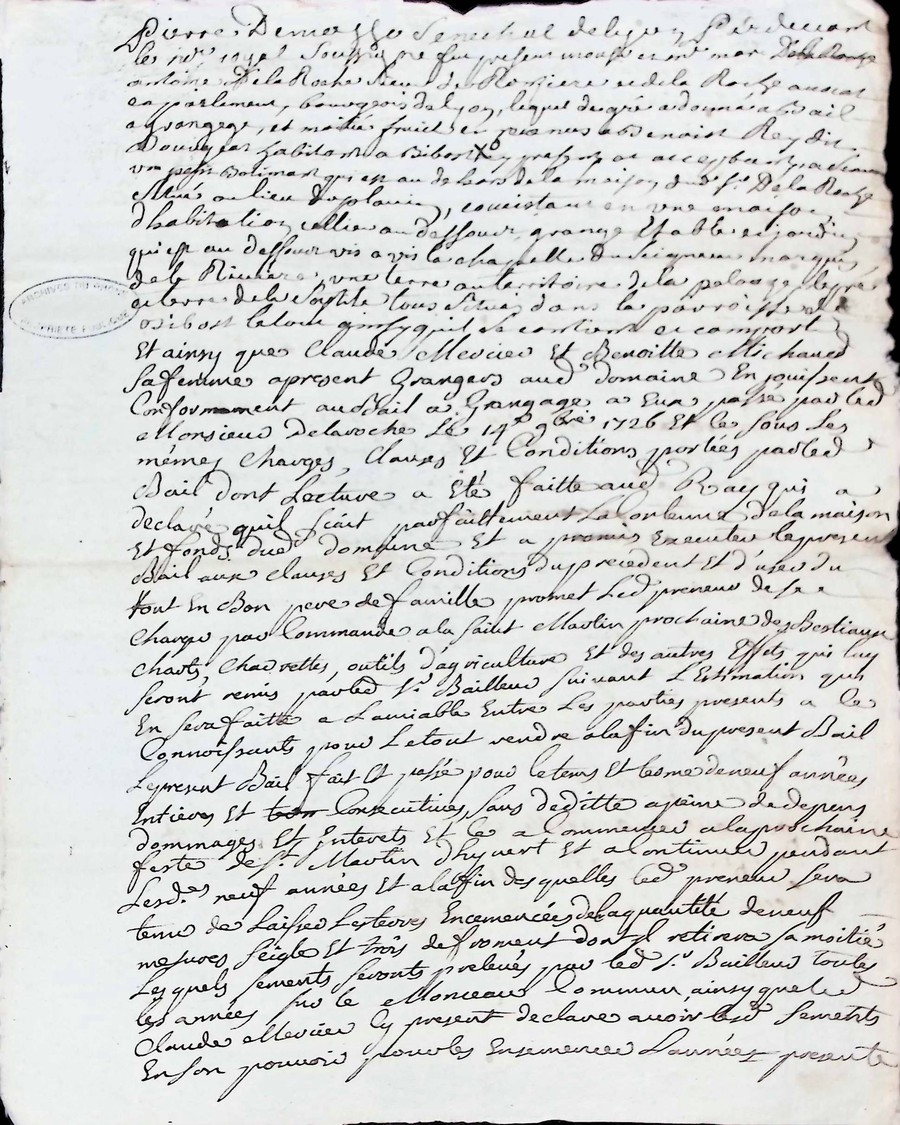 Pierre De Senechal de Lyon Pardevant
le no.re royal Soussigné fut present noble et m.re
antoine Dela Roche sieur de et de la avocat
en parlement, bourgeois de Lyon, lequel de gré a donné a Bail
a grangage, et moitié fruict et a Benoist Rey dit
habitant a Bibost present et acceptant
un petit Batiment qui est au dehors de la maison dud. S.r Dela Roche
situé au lieu du plavin, consistant en une maison
d'habitation, cellier au dessous, grange Etable et jardin
qui est au dessous vis a vis la chapelle du seigneur marquis
de la Riviere, une terre au territoire de la palouze le pré
et terre de la tous situés dans la parroisse de
Bibost le tout ainsy quil se contient et comporte
Et ainsy que Claude Mercier Et Benoitte Michaud
sa femme apresent Grangers aud. domaine En jouissent
Conformement au Bail a Grangage a Eux passé par led.
Monsieur Delaroche Le 14.e 9bre 1726 Et le sous Les
mémes Charges, Clauses Et Conditions portées par led.
Bail dont Lecture a Eté faitte aud. Rey qui a
declaré quil sçait parfaittement La de la maison
Et fonds dud. domaine Et a promis Executer le present
Bail aux clauses Et Conditions du precedent Et d'user du
tout En Bon pere de famille promet Led. preneur de se
Charger par Commande a la Saint Martin prochaine des Bestiaux
chars, Charettes, outils d'agriculture Et des autres Effets qui luy
seront remis par led. S.r Bailleur suivant L'Estimation qui
En sera faitte a Lamiable Entre Les parties presents a ce
Connoissants pour Le tout rendre a la fin du present Bail
Le present Bail fait Et passé pour le tems Et terme de neuf années
Entieres Et Consecutives, sans deditte a peine de depens
dommages Et Interets Et le a Commencer a la prochaine
feste de S.t Martin d'hyvert Et a Continuer pendant
Lesd.es neuf années Et a la fin des quelles led. preneur sera
tenu de Laisser Les terres Encemencées de la quantité de neuf
mesures seigle Et trois de froment dont Il retirera sa moitié
Les quels sements seront prelevés par led. S.r Bailleur toutes
les années sur le Monceau Commun, ainsy que led.
Claude Mercier Cy present declare avoir lesd. sements
En son pouvoir pour les Ensemencer L'année presente
ARCHIVES DU RHONE